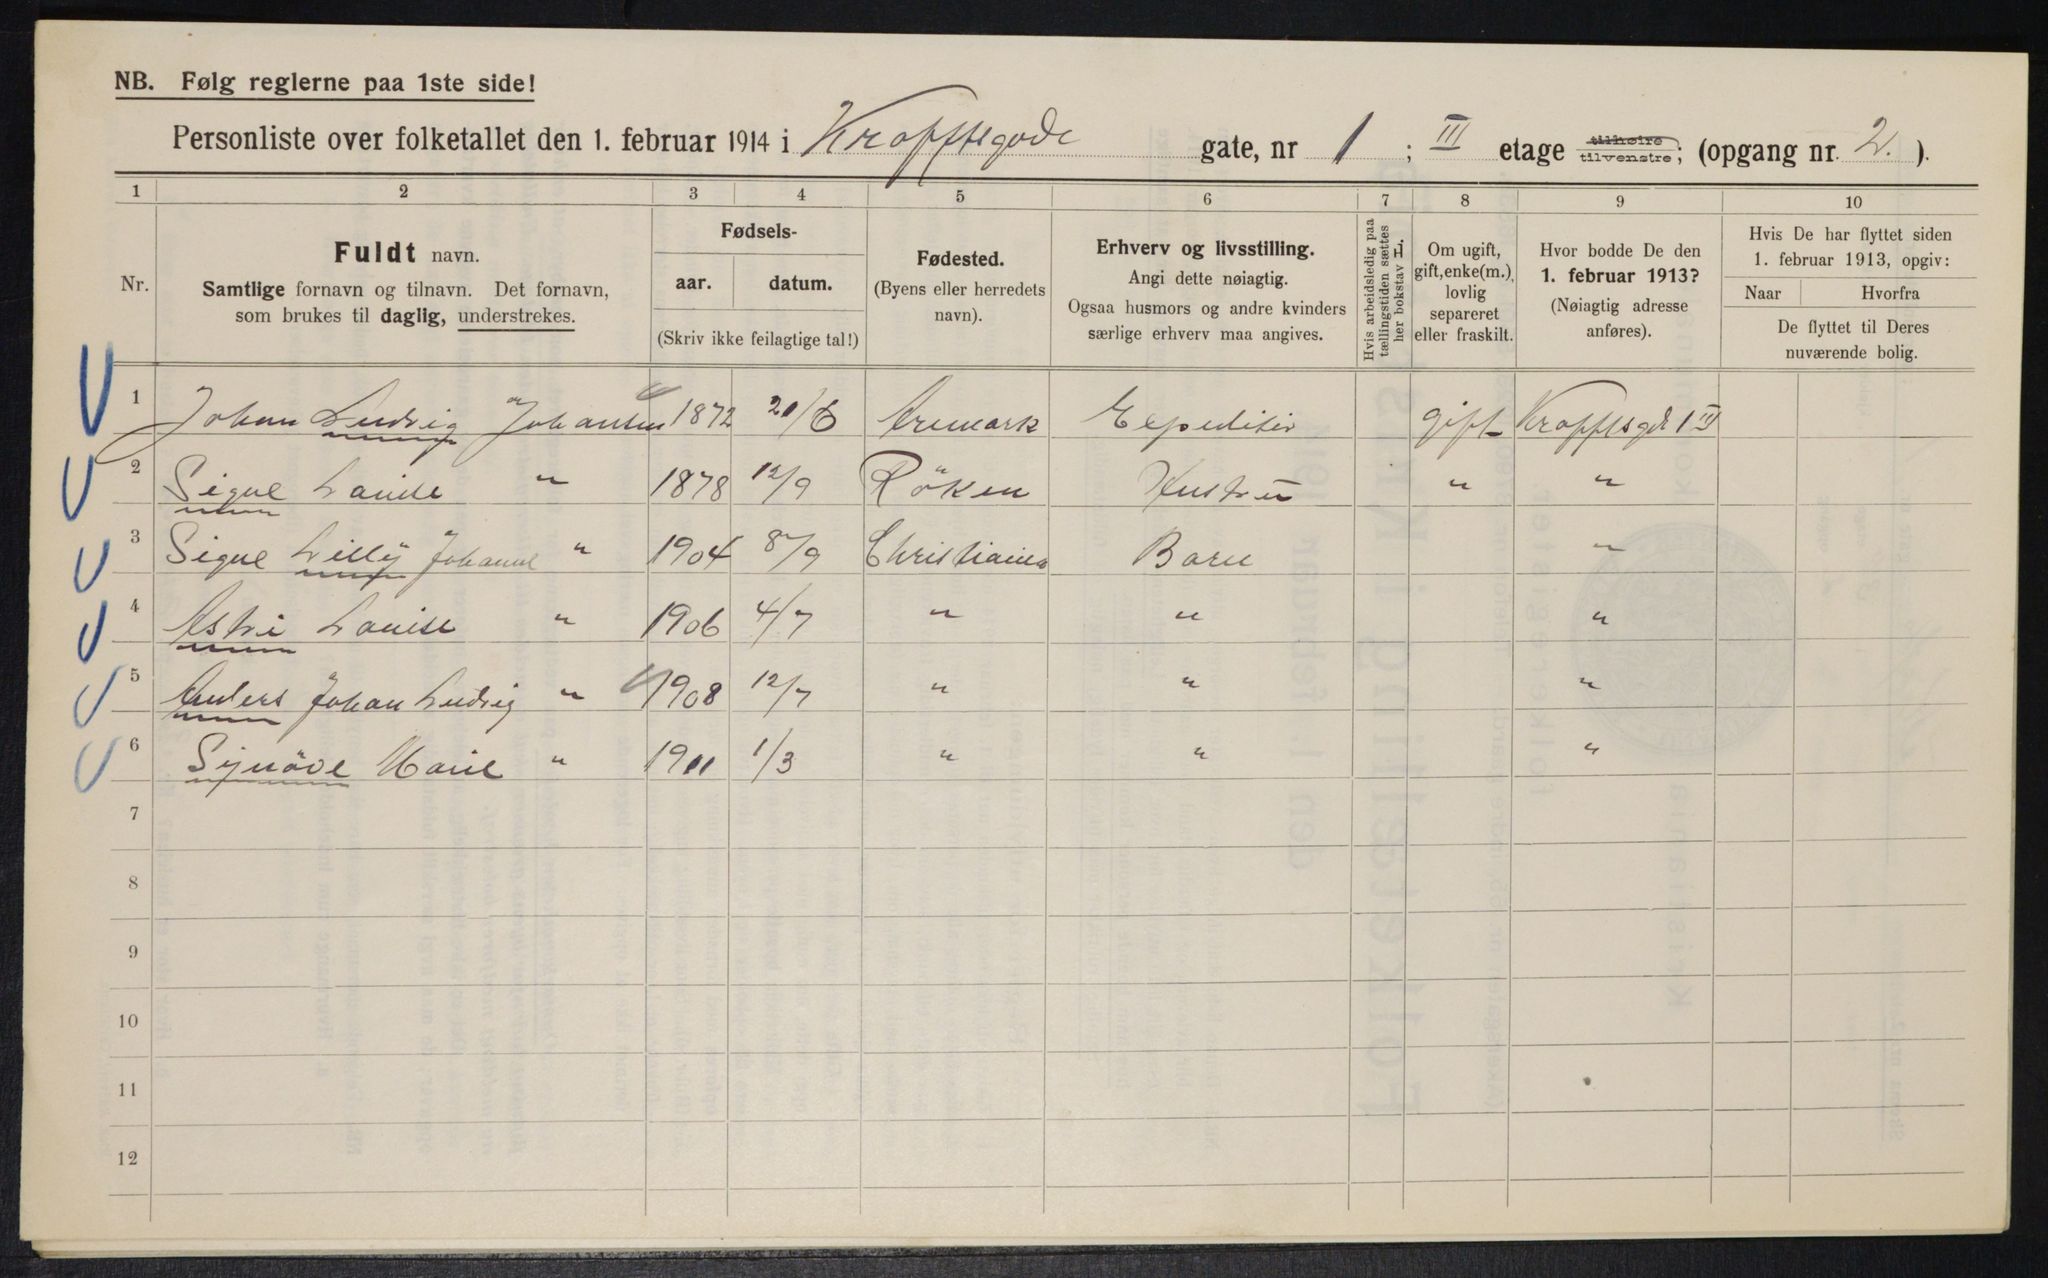 NB. Følg reglerne paa 1ste side!
Personliste over folketallet den 1. februar 1914 i Kropffsgade gate, nr 1 ; III etage tilhøire tilvenstre; (opgang nr. 2. ).
1 2 3 4 5 6 7 8 9 10
Nr.
Fuldt navn.
Samtlige fornavn og tilnavn. Det fornavn,
som brukes til daglig, understrekes.
Fødsels-
aar. datum.
(Skriv ikke feilagtige tal!)
Fødested.
(Byens eller herredets
navn).
Erhverv og livsstilling.
Angi dette nøiagtig.
Ogsaa husmors og andre kvinders
særlige erhverv maa angives.
Hvis arbeidsledig paa
tællingstiden sættes
her bokstav L.
Om ugift,
gift, enke(m.),
lovlig
separeret
eller fraskilt.
Hvor bodde De den
1. februar 1913?
(Nøiagtig adresse
anføres).
Hvis De har flyttet siden
1. februar 1913, opgiv:
Naar Hvorfra
De flyttet til Deres
nuværende bolig.
1 Johan Ludvig Johansen 1872 20/6 Aremark Expeditör gift Kropffsgd 1 III
2 Signe Louise " 1878 12/9 Röken Hustru " "
3 Signe Lilly Johanne " 1904 8/9 Christiania Barn "
4 Astri Louise " 1906 4/7 " " "
5 Anders Johan Ludvig " 1908 12/7 " " "
6 Synöve Marie " 1911 1/3 " " "
7
8
9
10
11
12